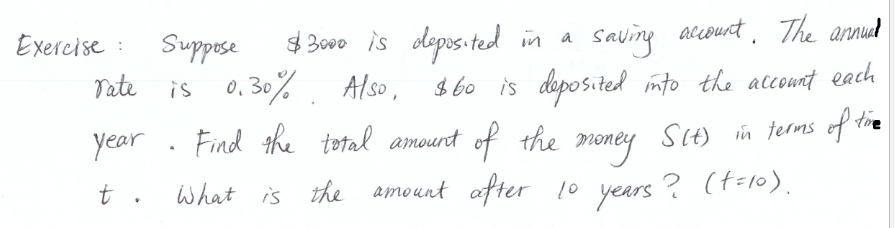 Exercise : Suppose $3000 is deposited in a saving account. The annual
rate is 0.30%. Also, $60 is deposited into the account each
year. Find the total amount of the money S(t) in terms of time
t. What is the amount after 10 years? (t=10).